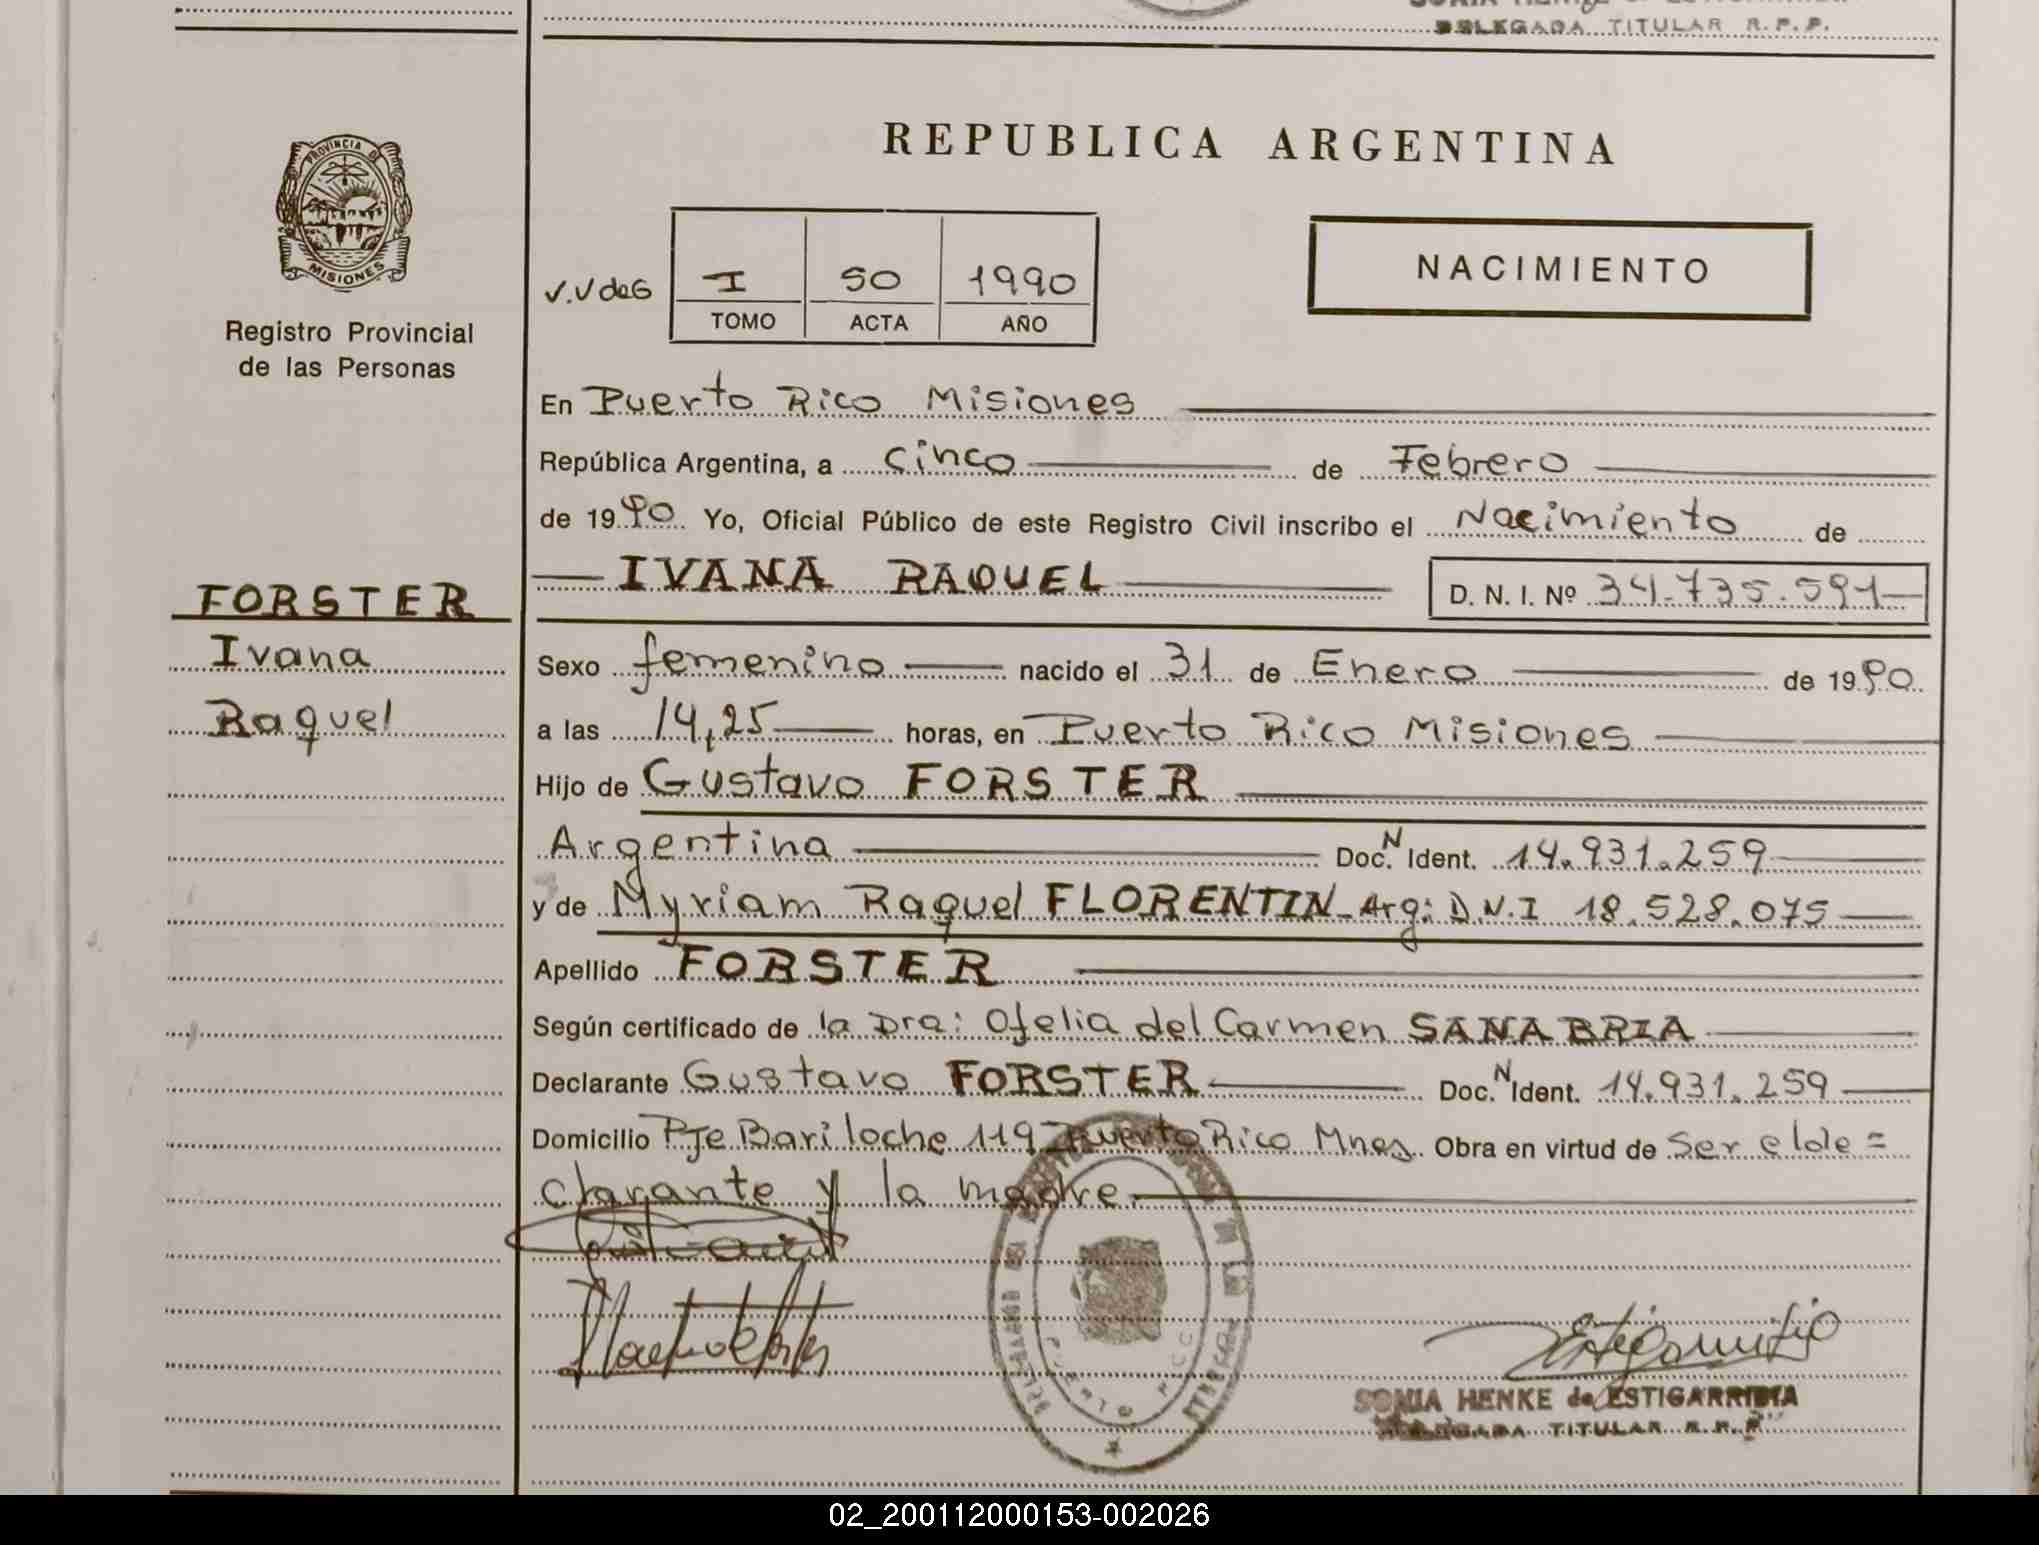 DELEGADA TITULAR R.P.P.
PROVINCIA DE
MISIONES
Registro Provincial
de las Personas
REPUBLICA ARGENTINA
NACIMIENTO
V.V de G
I 50 1990
TOMO ACTA AÑO
En Puerto Rico Misiones
República Argentina, a cinco de Febrero
de 1990 Yo, Oficial Público de este Registro Civil inscribo el Nacimiento de
IVANA RAQUEL D. N. I. Nº 34.735.591
FORSTER
Ivana
Raquel
Sexo femenino nacido el 31 de Enero de 1990
a las 14,25 horas, en Puerto Rico Misiones
Hijo de Gustavo FORSTER
Argentina Doc. N Ident. 14.931.259
y de Myriam Raquel FLORENTIN Arg: D.N.I 18.528.075
Apellido FORSTER
Según certificado de la Dra: Ofelia del Carmen SANABRIA
Declarante Gustavo FORSTER Doc. N Ident. 14.931.259
Domicilio Pje Bariloche 119 Puerto Rico Mnes. Obra en virtud de ser el de=
clarante y la madre.
PUERTO RICO
SONIA HENKE de ESTIGARRIBIA
DELEGADA TITULAR R.P.P.
02_200112000153-002026